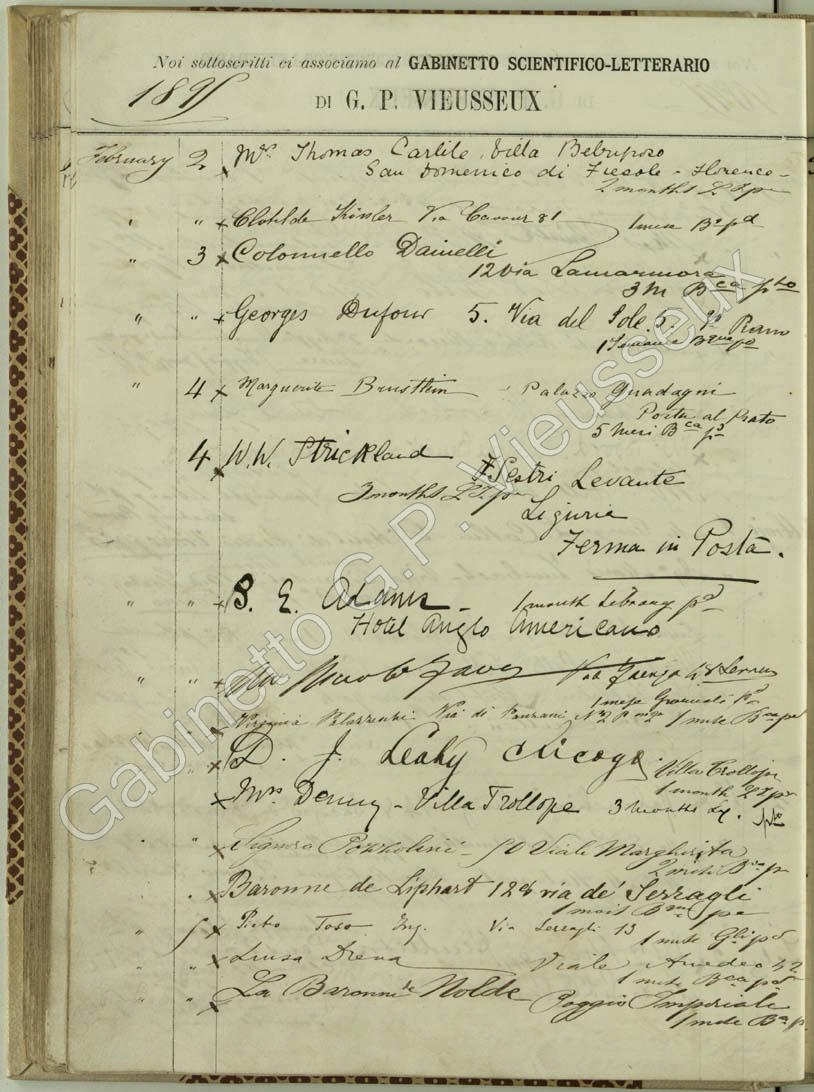 Noi sottoscritti ci associamo al GABINETTO SCIENTIFICO-LETTERARIO
DI G. P. VIEUSSEUX
189
February 2 x Mrs Thomas Carlile Villa
San Domenico di Fiesole - Florence -
2 months
" " x Clotilde Via Cavour 81 1 mese Bca pd
" 3 x Colonnello Dainelli
12 Via Lamarmora
3 M Bca pto
" " x Georges Dufour 5. Via del Sole 5. Piano
1 Semana
" 4 x Marguerite Palazzo Guadagni
Porta al Prato
5 mesi Bca pd
4 x W. W. Strickland Sestri Levante
3 months
Liguria
Ferma in Posta.
" " x E. Adams - 1 month Library pd
Hotel Anglo Americano
" " x
1 mese Giornali
Virginia Via di Panzani No 2 1 mese Bca pd
" x D. J. Leahy Chicago Villa Trollope
1 month
x Mrs - Villa Trollope 3 months
" " x Signora Pozzolini - Viale Margherita
2 mesi Bca p
" x Baronne de Liphart 128 via de' Serragli
1 mois
" 5 x Toso Ing. Via Serragli 13
1 mese pd
" " x Luisa Viale Amedeo 42
1 mese Bca pd
" " x La Baronne de Nolde Poggio Imperiale
1 mese Bca p.
Gabinetto G.P. Vieusseux